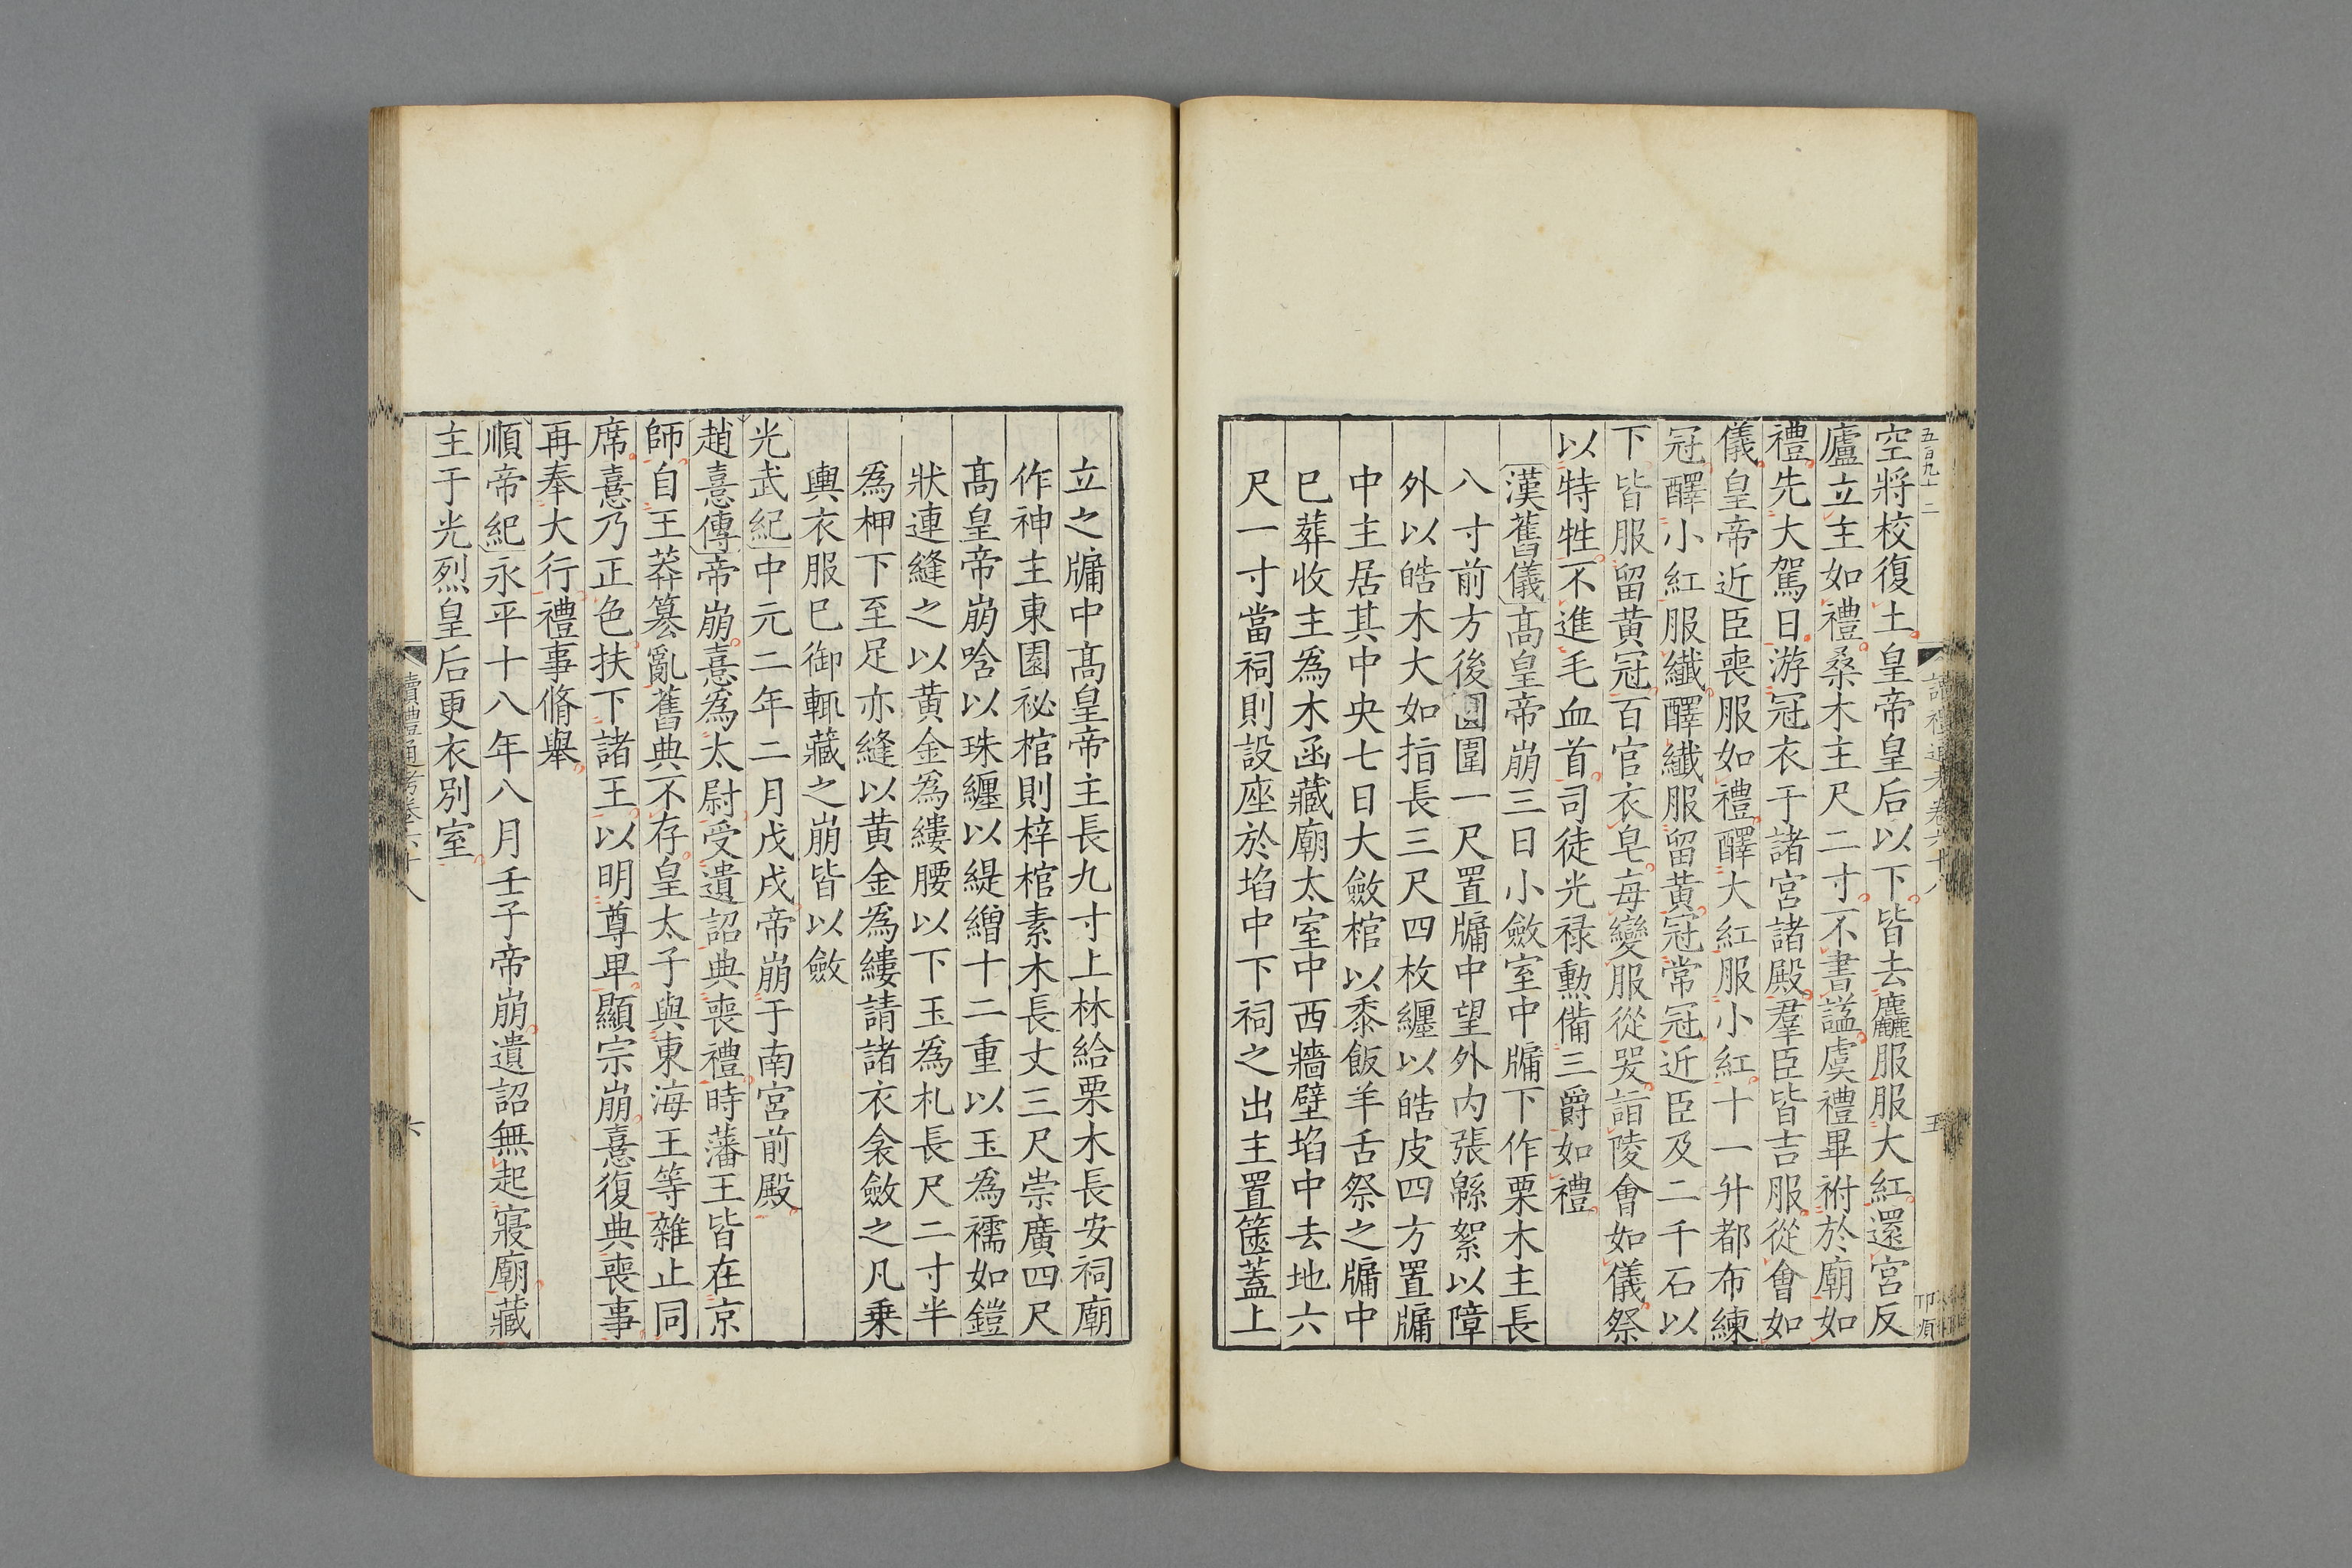 五百九十二
讀禮通考卷六十八
五
空將校復土皇帝皇后以下皆去麤服服大紅還宮反
廬立主如禮桑木主尺二寸不書諡虞禮畢祔於廟如
禮先大駕日游冠衣于諸宮諸殿羣臣皆吉服從會如
儀皇帝近臣喪服如禮醳大紅服小紅十一升都布練
冠醳小紅服纖醳纖服留黃冠常冠近臣及二千石以
下皆服留黃冠百官衣皂每變服從哭詣陵會如儀祭
以特牲不進毛血首司徒光禄勲備三爵如禮
漢舊儀髙皇帝崩三日小斂室中牖下作栗木主長
八寸前方後圓圍一尺置牖中望外内張緜絮以障
外以皓木大如指長三尺四枚纏以皓皮四方置牖
中主居其中央七日大斂棺以黍飯羊舌祭之牖中
已葬收主爲木函藏廟太室中西牆壁埳中去地六
尺一寸當祠則設座於埳中下祠之出主置篋蓋上
立之牖中髙皇帝主長九寸上林給栗木長安祠廟
作神主東園祕棺則梓棺素木長丈三尺崇廣四尺
髙皇帝崩唅以珠纏以緹繒十二重以玉爲襦如鎧
狀連縫之以黄金爲縷腰以下玉爲札長尺二寸半
爲柙下至足亦縫以黄金爲縷請諸衣衾斂之凡乗
輿衣服已御輒藏之崩皆以斂
光武紀中元二年二月戊戌帝崩于南宮前殿
趙憙傳帝崩憙爲太尉受遺詔典喪禮時藩王皆在京
師自王莽簒亂舊典不存皇太子與東海王等雜止同
席憙乃正色扶下諸王以明尊卑顯宗崩憙復典喪事
再奉大行禮事脩舉
順帝紀永平十八年八月壬子帝崩遺詔無起寢廟藏
主于光烈皇后更衣別室
讀禮通考卷六十八
六